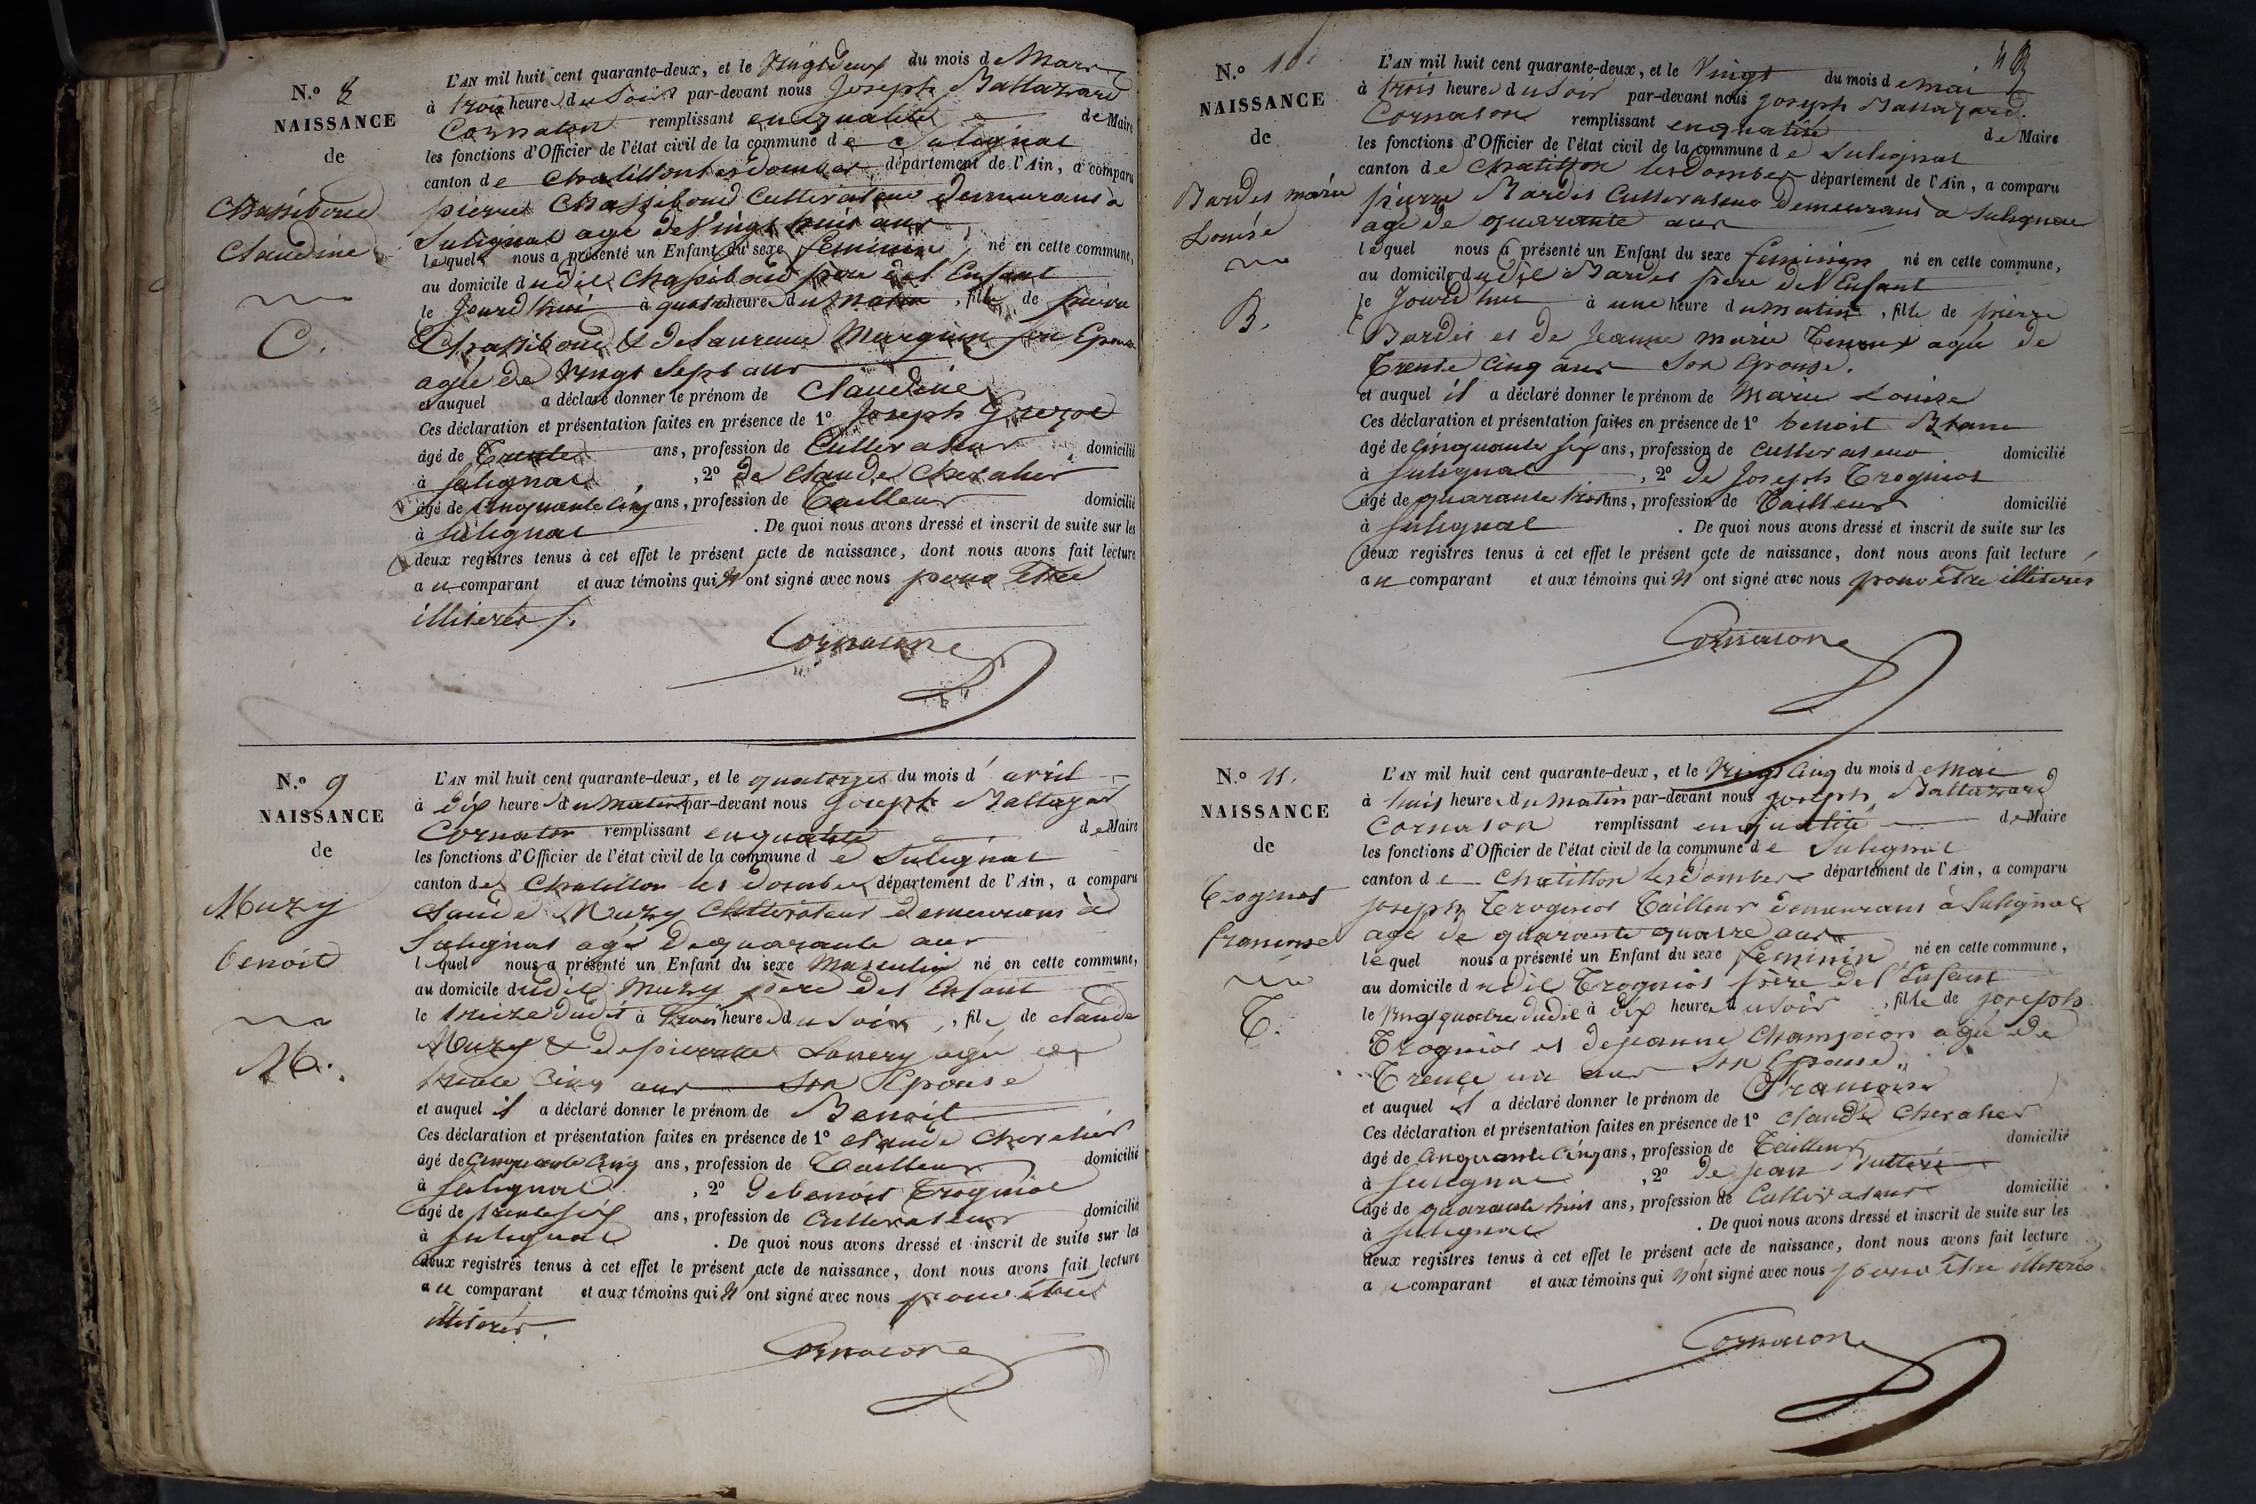 N.o 8
NAISSANCE
de
Chassiboud
Claudine
C.
L'AN mil huit cent quarante-deux, et le vingt deux du mois de Mars
à trois heure du Soir par-devant nous Joseph Baltazard
Cornaton remplissant en qualité de Maire
les fonctions d'Officier de l'état civil de la commune de Sulignat
canton de Chatillon les dombes département de l'Ain, a comparu
pierre Chassiboud Cultivateur demeurant à
Sulignat agé de Vingt huit ans
lequel nous a présenté un Enfant du sexe feminin, né en cette commune,
au domicile dudit Chassiboud père del Enfant
le Jourd'hui à quatre heure du matin, fille de pierre
Chassiboud & de Laurence Marguin son Epouse
agée de Vingt Sept ans
et auquel a déclaré donner le prénom de Claudine
Ces déclaration et présentation faites en présence de 1o Joseph
âgé de Trente ans, profession de Cultivateur domicilié
à Sulignat, 2o de Claude Chevalier
âgé de Cinquante Cinq ans, profession de Tailleur domicilié
à Sulignat. De quoi nous avons dressé et inscrit de suite sur les
deux registres tenus à cet effet le présent acte de naissance, dont nous avons fait lecture
au comparant et aux témoins qui N'ont signé avec nous pour être
illiterés /.
Cornaton
N.o 9
NAISSANCE
de
Muzy
benoit
M.
L'AN mil huit cent quarante-deux, et le quatorze du mois d'avril
à dix heure du Matin par-devant nous Joseph Baltazar
Cornaton remplissant en qualité de Maire
les fonctions d'Officier de l'état civil de la commune de Sulignat
canton de Chatillon les dombes département de l'Ain, a comparu
Claude Muzy Cultivateur demeurant à
Sulignat agé de quarante ans
lequel nous a présenté un Enfant du sexe Masculin né en cette commune,
au domicile dudit Muzy père del Enfant
le treize dudit à trois heure du Soir, fils de Claude
Muzy & de pierrette agée de
trente Cinq ans Son Epouse
et auquel il a déclaré donner le prénom de Benoit
Ces déclaration et présentation faites en présence de 1o Claude Chevalier
âgé de Cinquante Cinq ans, profession de Tailleur domicilié
à Sulignat, 2o de benoit Trogniot
âgé de trente six ans, profession de Cultivateur domicilié
à Sulignat. De quoi nous avons dressé et inscrit de suite sur les
deux registres tenus à cet effet le présent acte de naissance, dont nous avons fait lecture
au comparant et aux témoins qui N'ont signé avec nous pour être
illiterés.
Cornaton
N.o 10
NAISSANCE
de
Bardet marie
Louise
B.
L'AN mil huit cent quarante-deux, et le Vingt du mois de Mai
à trois heure du Soir par-devant nous Joseph Baltazard
Cornaton remplissant en qualité de Maire
les fonctions d'Officier de l'état civil de la commune de Sulignat
canton de Chatillon les Dombes département de l'Ain, a comparu
pierre Bardet Cultivateur Demeurant à Sulignat
agé de quarante ans
lequel nous a présenté un Enfant du sexe feminin né en cette commune,
au domicile dudit Bardet père del Enfant
le Jourd'hui à une heure du Matin, fille de pierre
Bardet et de Jeanne marie agée de
Trente Cinq ans Son Epouse.
et auquel il a déclaré donner le prénom de Marie Louise
Ces déclaration et présentation faites en présence de 1o benoit Blanc
âgé de Cinquante six ans, profession de Cultivateur domicilié
à Sulignat, 2o de Joseph Trogniot
âgé de quarante trois ans, profession de Tailleur domicilié
à Sulignat. De quoi nous avons dressé et inscrit de suite sur les
deux registres tenus à cet effet le présent acte de naissance, dont nous avons fait lecture
au comparant et aux témoins qui N'ont signé avec nous pour être illiterés
Cornaton
N.o 11.
NAISSANCE
de
Trogniot
francoise
T.
L'AN mil huit cent quarante-deux, et le Vingt Cinq du mois de Mai
à huit heure du Matin par-devant nous Joseph Baltazard
Cornaton remplissant en qualité de Maire
les fonctions d'Officier de l'état civil de la commune de Sulignat
canton de Chatillon les dombes département de l'Ain, a comparu
Joseph Trogniot Tailleur demeurant à Sulignat
agé de quarante quatre ans
lequel nous a présenté un Enfant du sexe feminin né en cette commune,
au domicile dudit Trogniot père del Enfant
le Vingt quatre dudit à dix heure du Soir, fille de Joseph
Trogniot et de jeanne Champion agée de
Trente un ans Son Epouse.
et auquel il a déclaré donner le prénom de Francoise
Ces déclaration et présentation faites en présence de 1o Claude Chevalier
âgé de Cinquante Cinq ans, profession de Tailleur domicilié
à Sulignat, 2o de jean
âgé de quarante huit ans, profession de Cultivateur domicilié
à Sulignat. De quoi nous avons dressé et inscrit de suite sur les
deux registres tenus à cet effet le présent acte de naissance, dont nous avons fait lecture
au comparant et aux témoins qui N'ont signé avec nous pour être illiterés
Cornaton